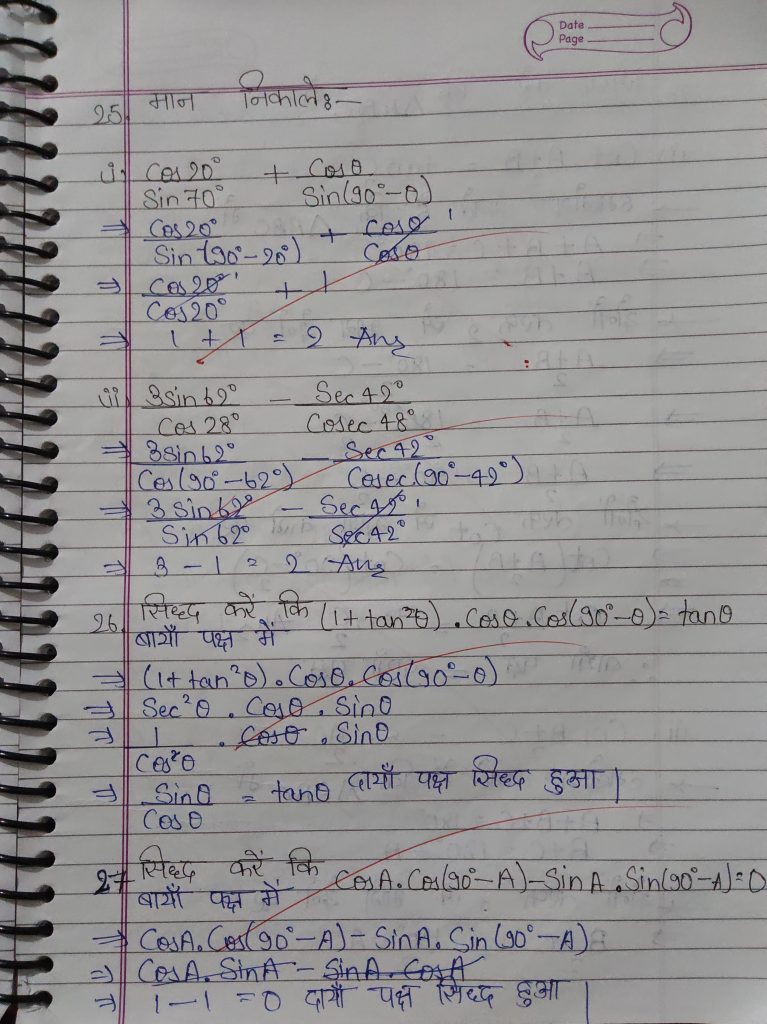 Date
Page
25. मान निकाले:-
i. Cos20°/Sin70° + Cosθ/Sin(90°-θ)
⇒ Cos20°/Sin(90°-20°) + Cosθ/Cosθ 1
⇒ Cos20° 1/Cos20° + 1
⇒ 1 + 1 = 2 Ans
ii. 3Sin62°/Cos28° - Sec42°/Cosec48°
⇒ 3Sin62°/Cos(90°-62°) - Sec42°/Cosec(90°-42°)
⇒ 3Sin62°/Sin62° - Sec42° 1/Sec42°
⇒ 3 - 1 = 2 Ans
26. सिध्द करें कि (1+tan²θ).Cosθ.Cos(90°-θ)=tanθ
बायाँ पक्ष में
⇒ (1+tan²θ).Cosθ.Cos(90°-θ)
⇒ Sec²θ . Cosθ . Sinθ
⇒ 1/Cos²θ . Cosθ . Sinθ
⇒ Sinθ/Cosθ = tanθ दायाँ पक्ष सिध्द हुआ |
27 सिध्द करें कि CosA.Cos(90°-A)-SinA.Sin(90°-A)=0
बायाँ पक्ष में
⇒ CosA.Cos(90°-A) - SinA.Sin(90°-A)
⇒ CosA.SinA - SinA.CosA
⇒ 1-1 = 0 दायाँ पक्ष सिध्द हुआ |